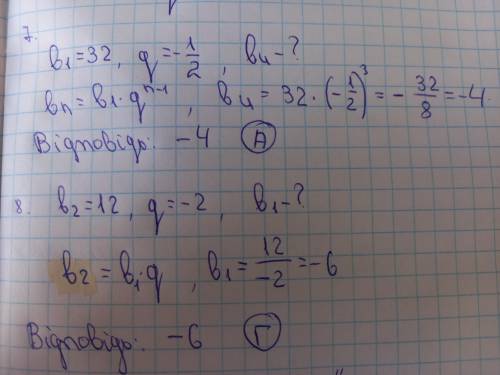 7.
b₁=32, q=-1/2, b₄-?
bn=b₁·qⁿ⁻¹, b₄=32·(-1/2)³=-32/8=-4.
Відповідь: -4 (А)
8. b₂=12, q=-2, b₁-?
b₂=b₁·q, b₁=12/-2=-6
Відповідь: -6 (Г)